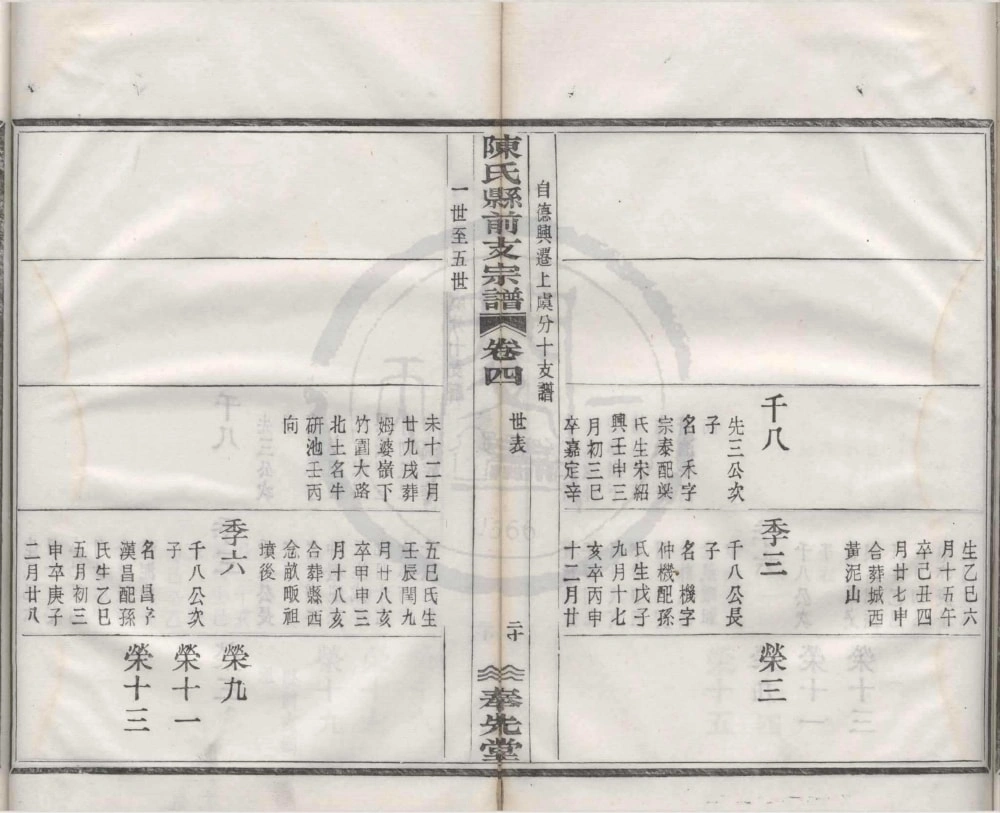 千八
先三公次
子
名禾字
宗泰配梁
氏生宋紹
興壬申三
月初三巳
卒嘉定辛
生乙巳六
月十五午
卒己丑四
月廿七申
合葬城西
黃泥山
季三
千八公長
子
名機字
仲機配孫
氏生戊子
九月十七
亥卒丙申
十二月廿
榮三
自德興遷上虞分十支譜
世表
二十
陳氏縣前支宗譜
卷四
奉先堂
一世至五世
未十二月
廿九戌葬
姆婆嶺下
竹園大路
北土名牛
研池壬丙
向
五巳氏生
壬辰閏九
月廿八亥
卒甲申三
月十八亥
合葬縣西
念畝畈祖
墳後
季六
千八公次
子
名昌字
漢昌配孫
氏生乙巳
五月初三
申卒庚子
二月廿八
榮九
榮十一
榮十三